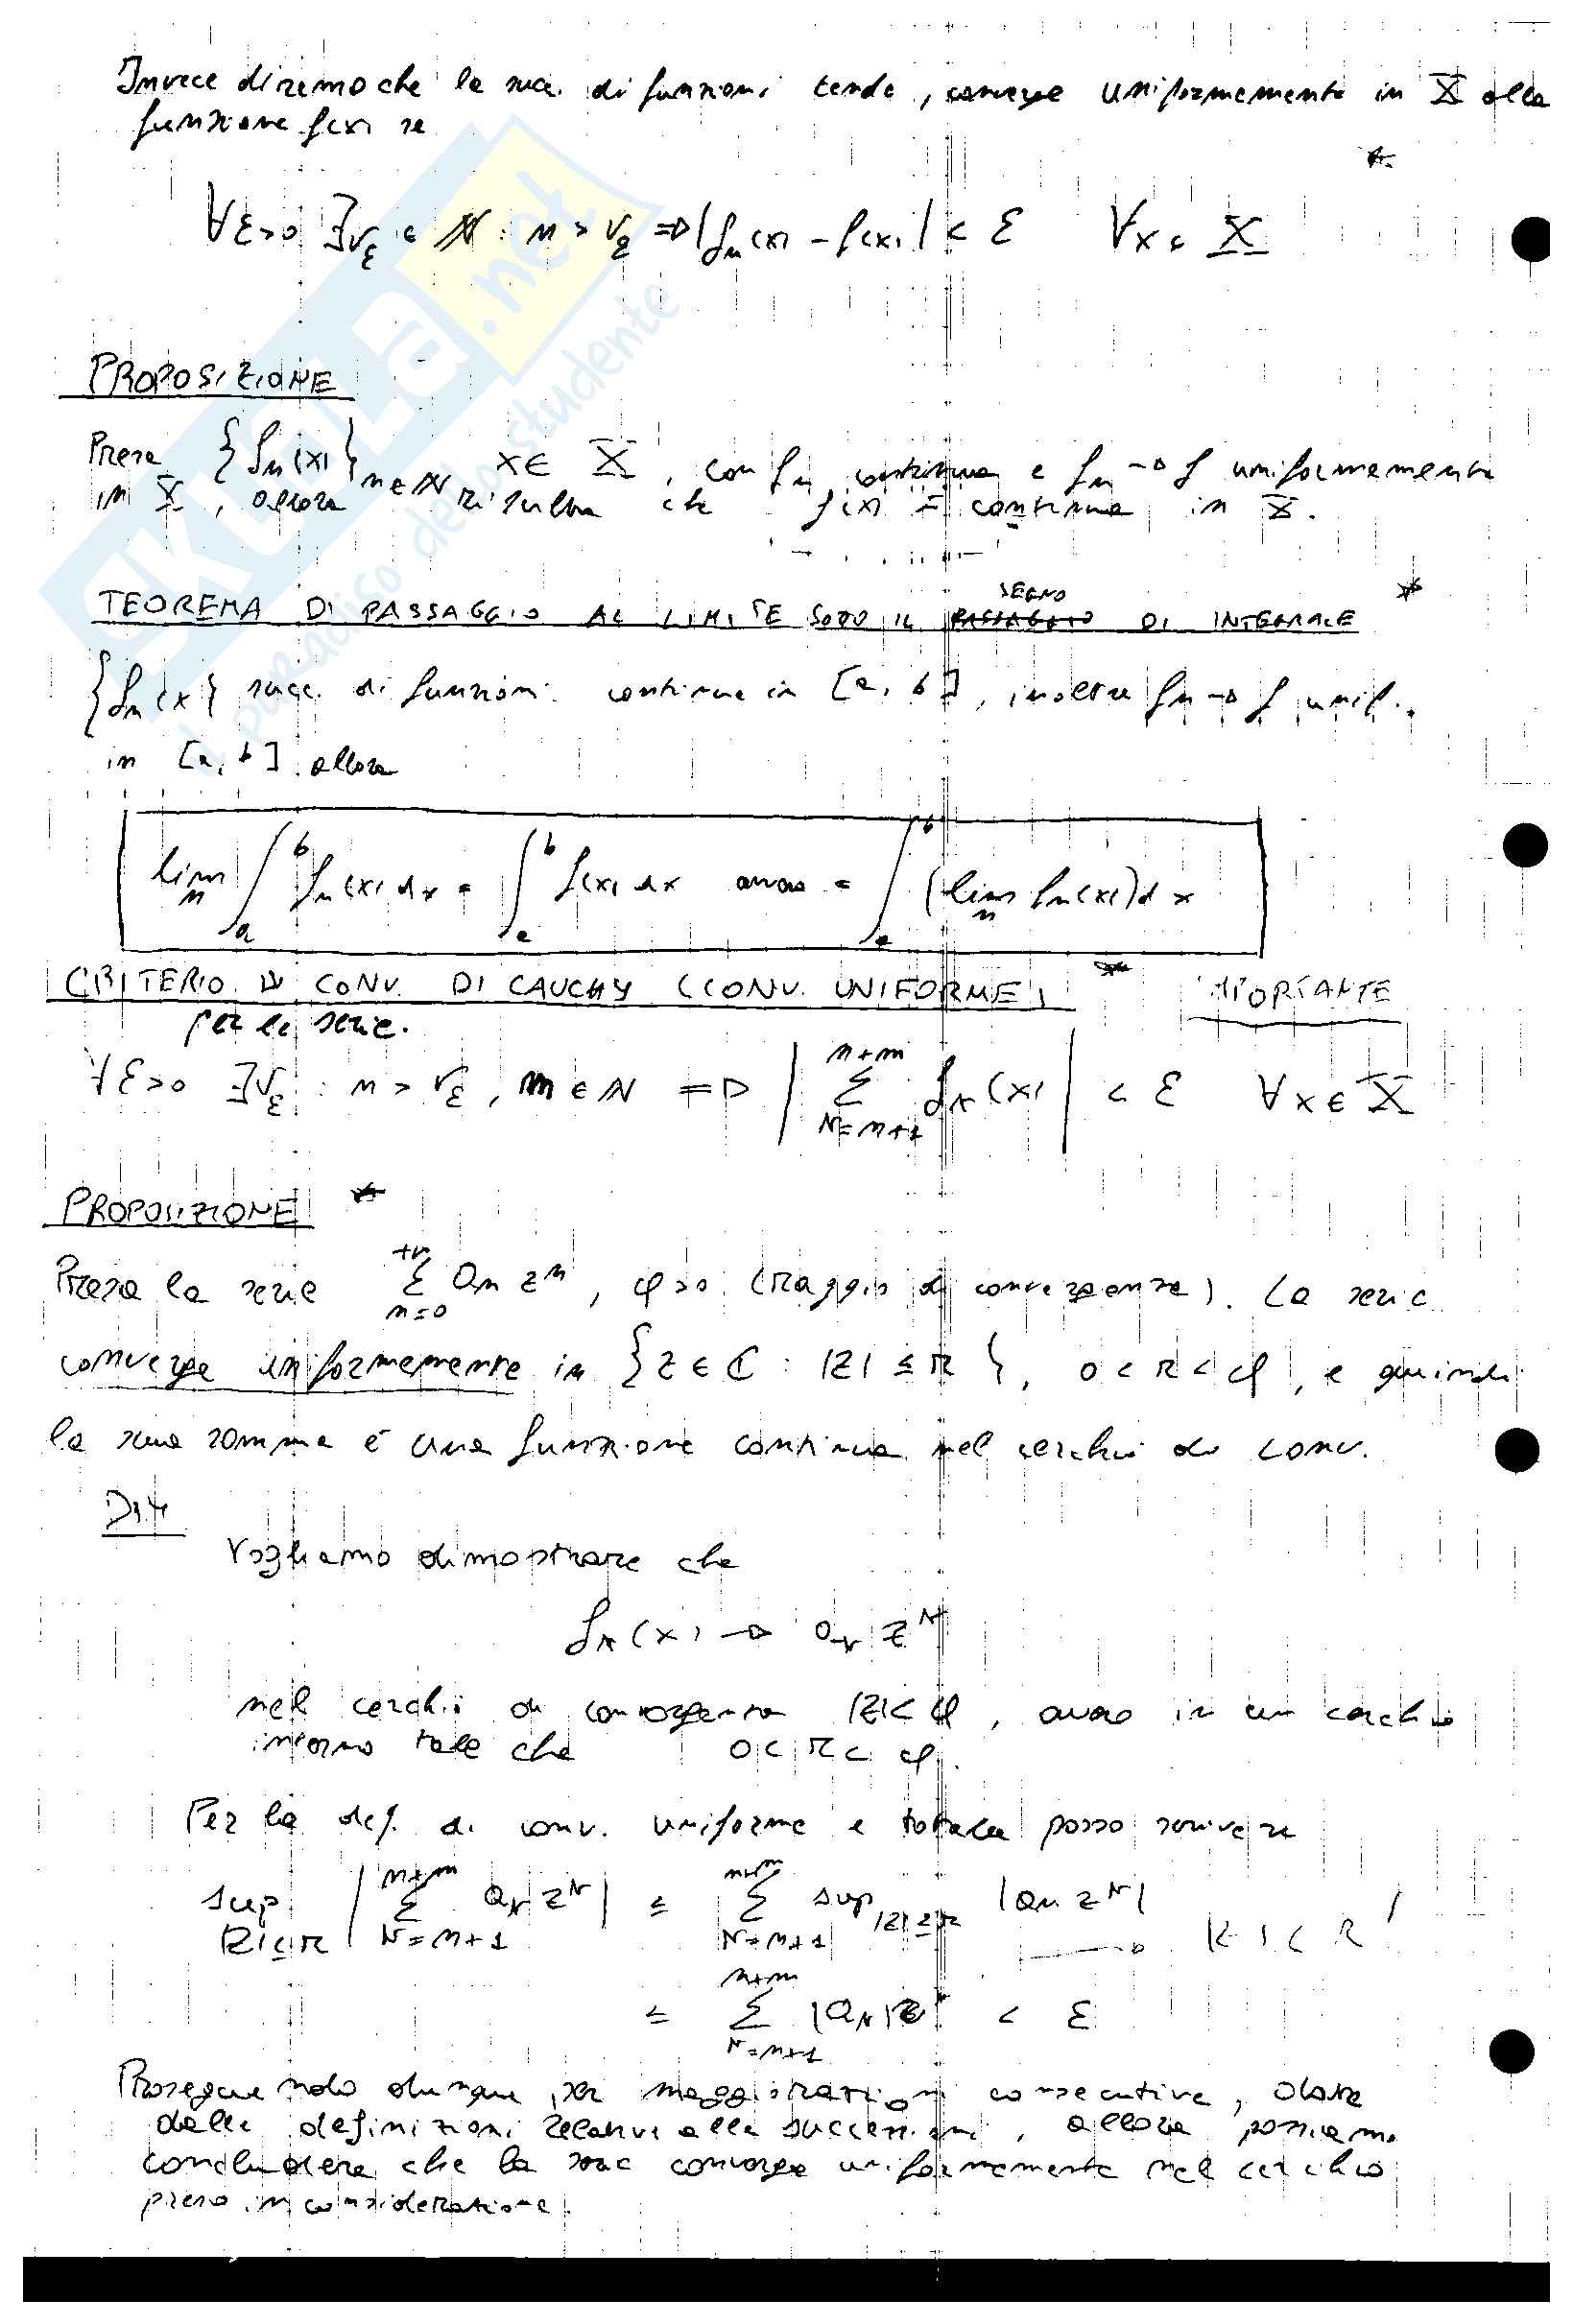 Invece diremo che la succ. di funzioni tende, converge uniformemente in X alla
funzione f(x) se
∀ε>0 ∃ν_ε ∈ ℕ : n > ν_ε ⇒ |f_n(x) - f(x)| < ε ∀x ∈ X
PROPOSIZIONE
Presa {f_n(x)}_{n∈ℕ} x ∈ X, con f_n continua e f_n → f uniformemente
in X, allora risulta che f(x) è continua in X.
TEOREMA DI PASSAGGIO AL LIMITE SOTTO IL SEGNO DI INTEGRALE
{f_n(x)} succ. di funzioni continue in [a, b], inoltre f_n → f unif.
in [a, b] allora
lim_n ∫_a^b f_n(x) dx = ∫_a^b f(x) dx ovvero = ∫_a^b (lim_n f_n(x)) dx
CRITERIO DI CONV. DI CAUCHY (CONV. UNIFORME) IMPORTANTE
per le serie.
∀ε>0 ∃ν_ε : n > ν_ε, m ∈ ℕ ⇒ |∑_{k=n+1}^{n+m} f_k(x)| < ε ∀x ∈ X
PROPOSIZIONE
Presa la serie ∑_{n=0}^{+∞} a_n z^n, φ>0 (raggio di convergenza). La serie
converge uniformemente in {z ∈ ℂ : |z| ≤ r}, 0 < r < φ, e quindi
la sua somma è una funzione continua nel cerchio di conv.
DIM
Vogliamo dimostrare che
f_k(x) → a_k z^k
nel cerchio di convergenza |z| < φ, ovvero in un cerchio
interno tale che 0 < r < φ.
Per la def. di conv. uniforme e totale posso scrivere
sup_{|z|≤r} |∑_{k=n+1}^{n+m} a_k z^k| ≤ ∑_{k=n+1}^{n+m} sup_{|z|≤r} |a_n z^k| → |z| < r
≤ ∑_{k=n+1}^{n+m} |a_k| r^k < ε
Proseguendo dunque per maggiorazioni consecutive, date
dalle definizioni relative alle successioni, allora possiamo
concludere che la serie converge uniformemente nel cerchio
preso in considerazione.
SKUOLA.net
il paradiso dello studente